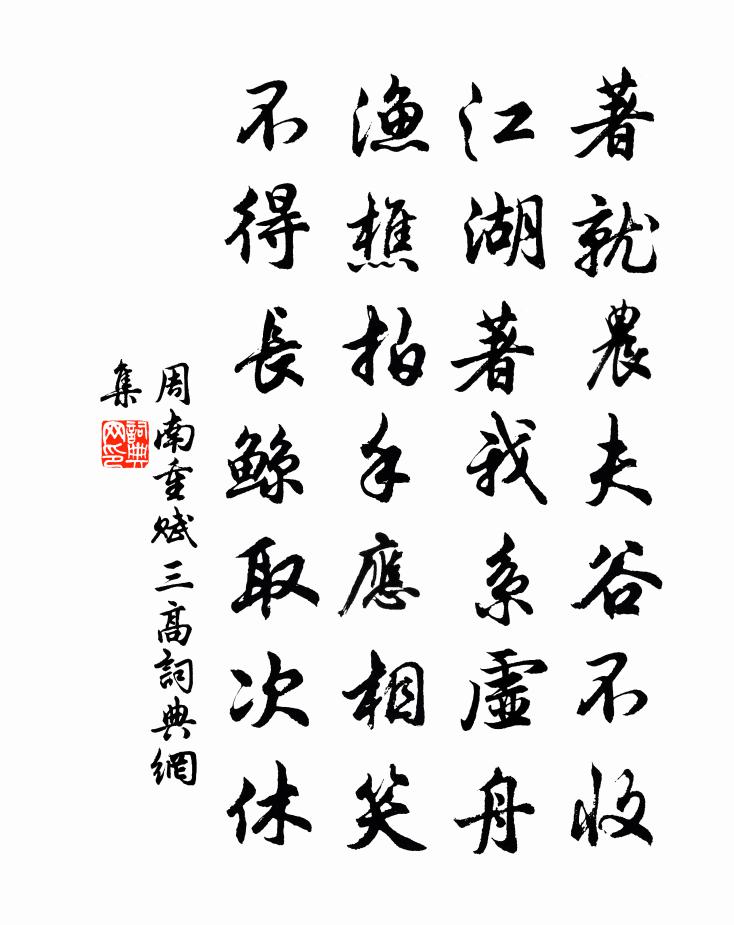 著就農夫谷不收
江湖著我系虛舟
漁樵拍手應相笑
不得長鯨取次休
周南重賦三高詞典網
集
詞典網印